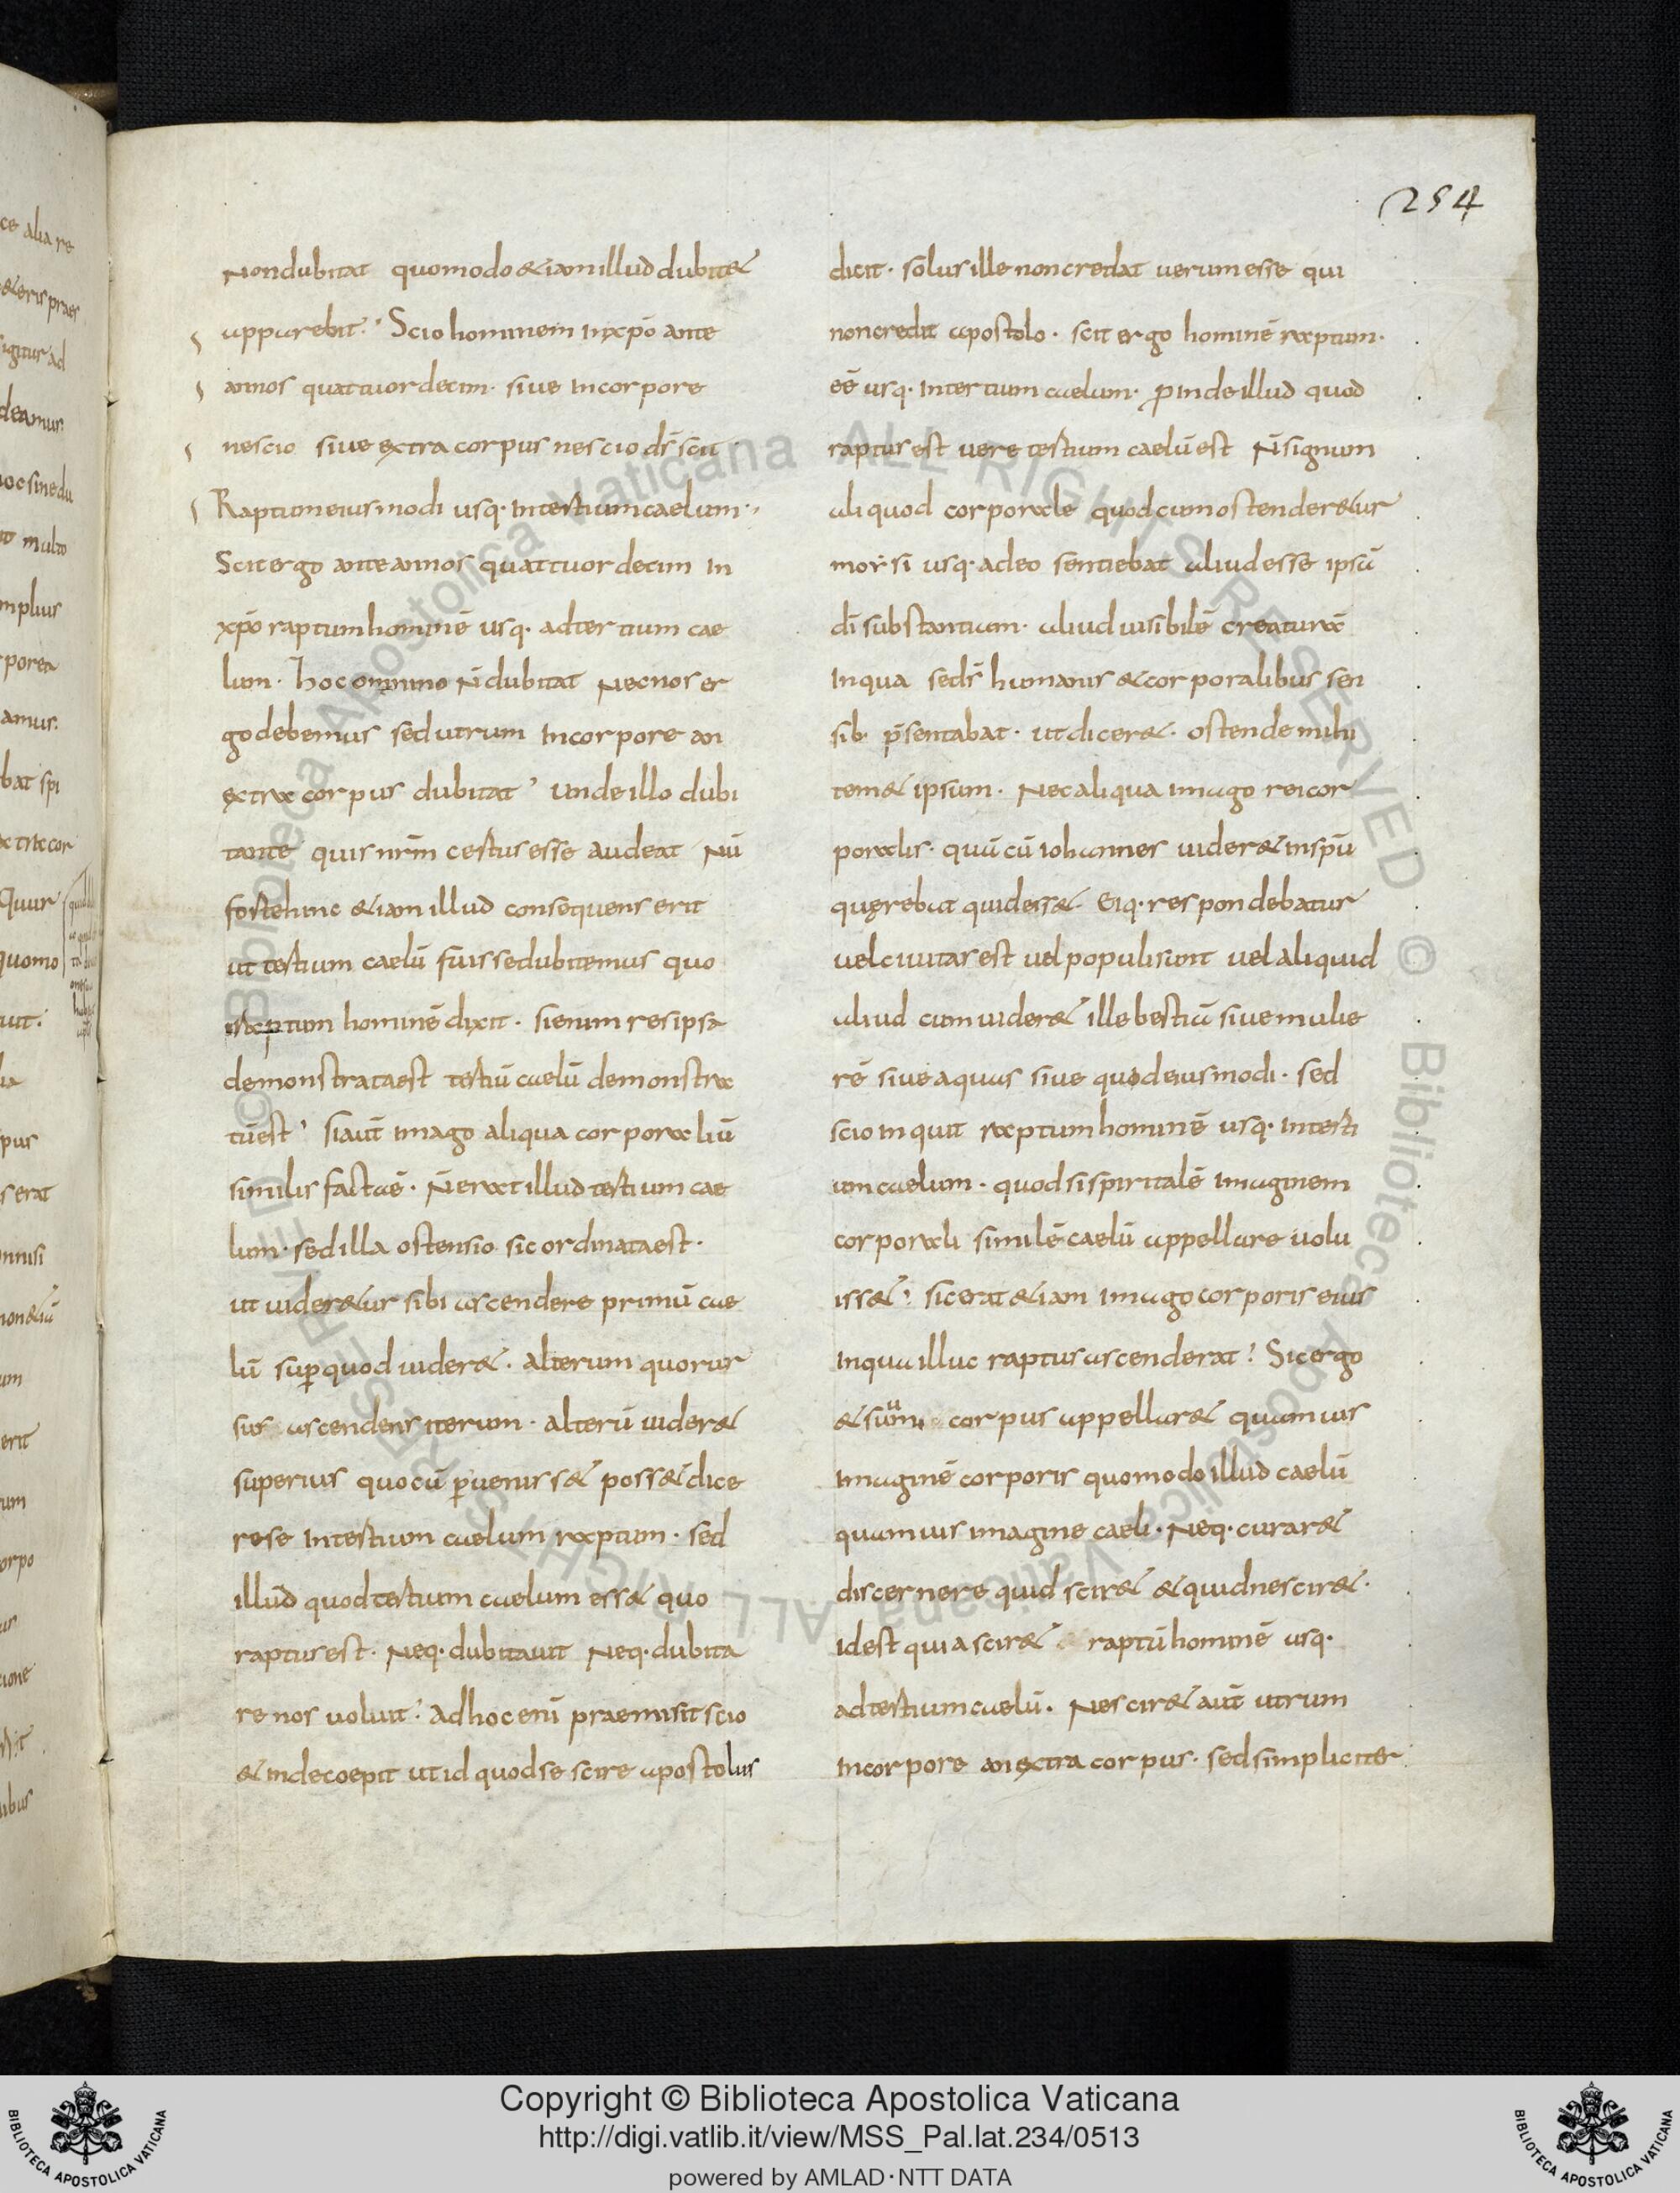 254
Non dubitat quomodo & iam illud dubit&
apparebit. Scio hominem in xp̄o ante
annos quattuordecim. sive in corpore
nescio sive extra corpus nescio d̄s scit
Raptum eiusmodi usq. in tertium caelum.
Scit ergo ante annos quattuordecim in
xp̄o raptum hominē usq. ad tertium cae
lum. hoc omnino N̄ dubitat Nec nos er
go debemus sed utrum in corpore an
extra corpus dubitat unde illo dubi
tante quis nr̄m certus esse audeat Nū
forte hinc & iam illud consequens erit
ut tertium caelū fuisse dubitemus quo
raptum hominē dixit. si enim res ipsa
demonstrata est tertiū caelū demonstra
tū est si aut̄ imago aliqua corporaliū
similis facta ē. N̄ erat illud tertium cae
lum. sed illa ostensio sic ordinata est.
ut uider&ur sibi ascendere primū cae
lū sup quod uider&. alterum quo rur
sus ascendens iterum. alterū uider&
superius quo cū pueniss& poss& dice
re se in tertium caelum raptum. sed
illud quod tertium caelum ess& quo
raptus est. Neq. dubitauit Neq. dubita
re nos uoluit. ad hoc enī praemisit scio
& inde coepit ut id quod se scire apostolus
dicit. solus ille non credat uerum esse qui
non credit apostolo. scit ergo hominē raptum.
eē usq. in tertium caelum. p inde illud quod
raptus est uere tertium caelū est N̄ signum
aliquod corporale quod cum ostender&ur
moysi usq. adeo sentiebat aliud esse ipsā
dī substantiam. aliud uisibilē creaturā
in qua se d̄s humanis & corporalibus sen
sib. p̄sentabat. ut dicer&. ostende mihi
tem& ipsum. Nec aliqua imago rei cor
poralis. quā cū iohannes uider& in sp̄u
quęrebat quid ess& Eiq. respondebatur
uel ciuitas est uel populi sunt uel aliquid
aliud cum uider& ille bestiā siue mulie
rē siue aquas siue quid eiusmodi. sed
scio inquit raptum hominē usq. in terti
um caelum. quod si spiritalē imaginem
corporali similē caelū appellare uolu
iss&. sic erat & iam imago corporis eius
in qua illuc raptus ascenderat. Sic ergo
& suum corpus appellar& quamuis
imaginē corporis quomodo illud caelū
quamuis imagine caeli. Neq. curar&
discernere quid scir& & quid nescir&.
id est quia scir& raptū hominē usq.
ad tertium caelū. Nescir& aut̄ utrum
in corpore an extra corpus. sed simpliciter
Copyright © Biblioteca Apostolica Vaticana
http://digi.vatlib.it/view/MSS_Pal.lat.234/0513
powered by AMLAD·NTT DATA
BIBLIOTECA APOSTOLICA VATICANA
BIBLIOTECA APOSTOLICA VATICANA
© Biblioteca Apostolica Vaticana ALL RIGHTS RESERVED © Biblioteca Apostolica Vaticana ALL RIGHTS RESERVED